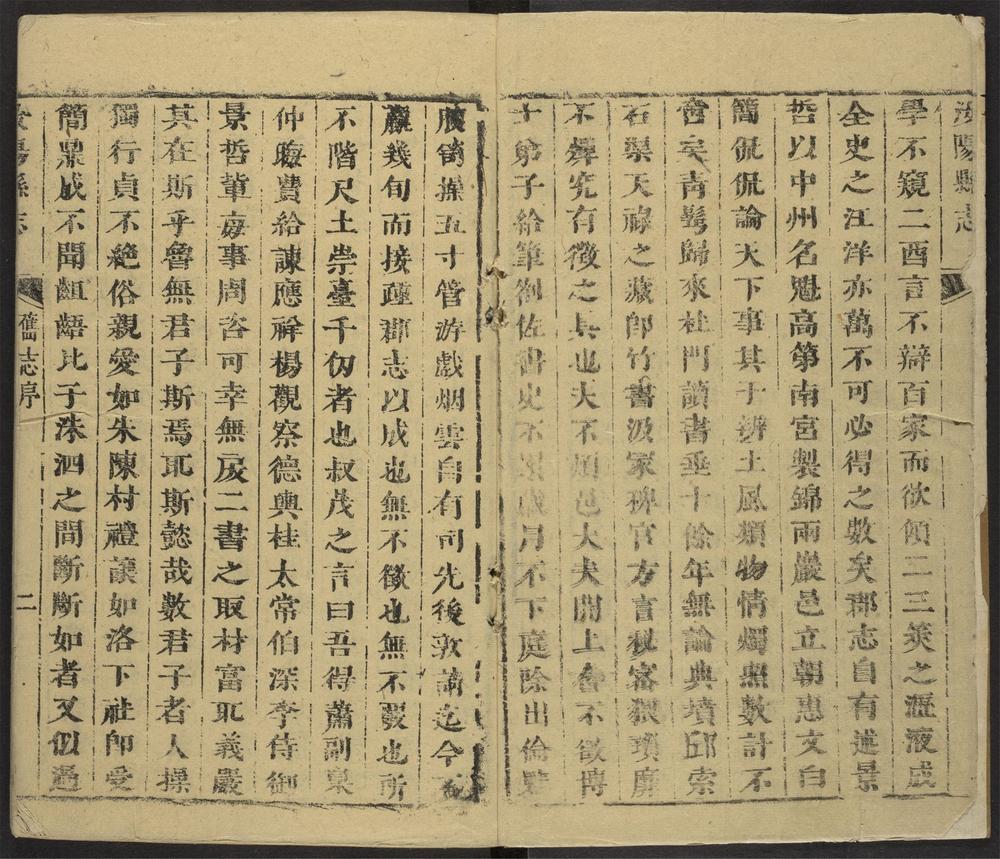 汝陽縣志
學不窺二酉言不辯百家而欲傾二三筴之瀝液成
全史之汪洋亦萬不可必得之數矣郡志自有遂景
哲以中州名魁高第南宮製錦兩巖邑立朝惠文白
簡侃侃論天下事其于辨土風類物情燭照數計不
啻矣青鬢歸來杜門讀書垂十餘年無論典墳邱索
石渠天祿之藏卽竹書汲冢稗官方言秘審猥瑣靡
不殫究有徵之具也夫不煩邑大夫開上舍不欲博
士弟子給筆劄佐書史不累歲月不下庭除出倫
腹笥操五寸管游戲烟雲自有司先後敦請迄今
藏幾旬而接踵郡志以成也無不徵也無不叕也所
不階尺土崇臺千仞者也叔茂之言曰吾得蕭副臬
仲晦費給諫應祥楊觀察德輿桂太常伯深李侍御
景哲輩毎事周咨可幸無戾二書之取材富耴義嚴
其在斯乎魯無君子斯焉耴斯懿哉數君子者人操
獨行貞不絶俗親愛如朱陳村禮讓如洛下社卽受
簡鼎成不聞齟齬比于洙泗之間齗齗如者又似過
汝陽縣志
舊志序
二